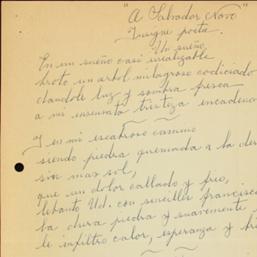 "A Salvador Novo"
Insigne poeta.
Un sueño
En un sueño casi irrealizable
broto un arbol milagroso codiciado
dandole luz y sombra fresca
a mi insensata tristeza encadena
Y en mi escabroso camino
siendo piedra quemada a la de
sin mas sol,
que un dolor callado y frio,
lebanto Ud. con sencillez francisca
ba dura piedra y suavemente
le infiltro calor, esperanza y